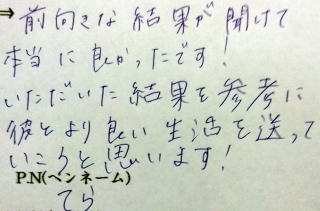 ⇒ 前向きな結果が聞けて
本当に良かったです!
いただいた結果を参考に
彼とより良い生活を送って
いこうと思います!
P.N(ペンネーム)
てら